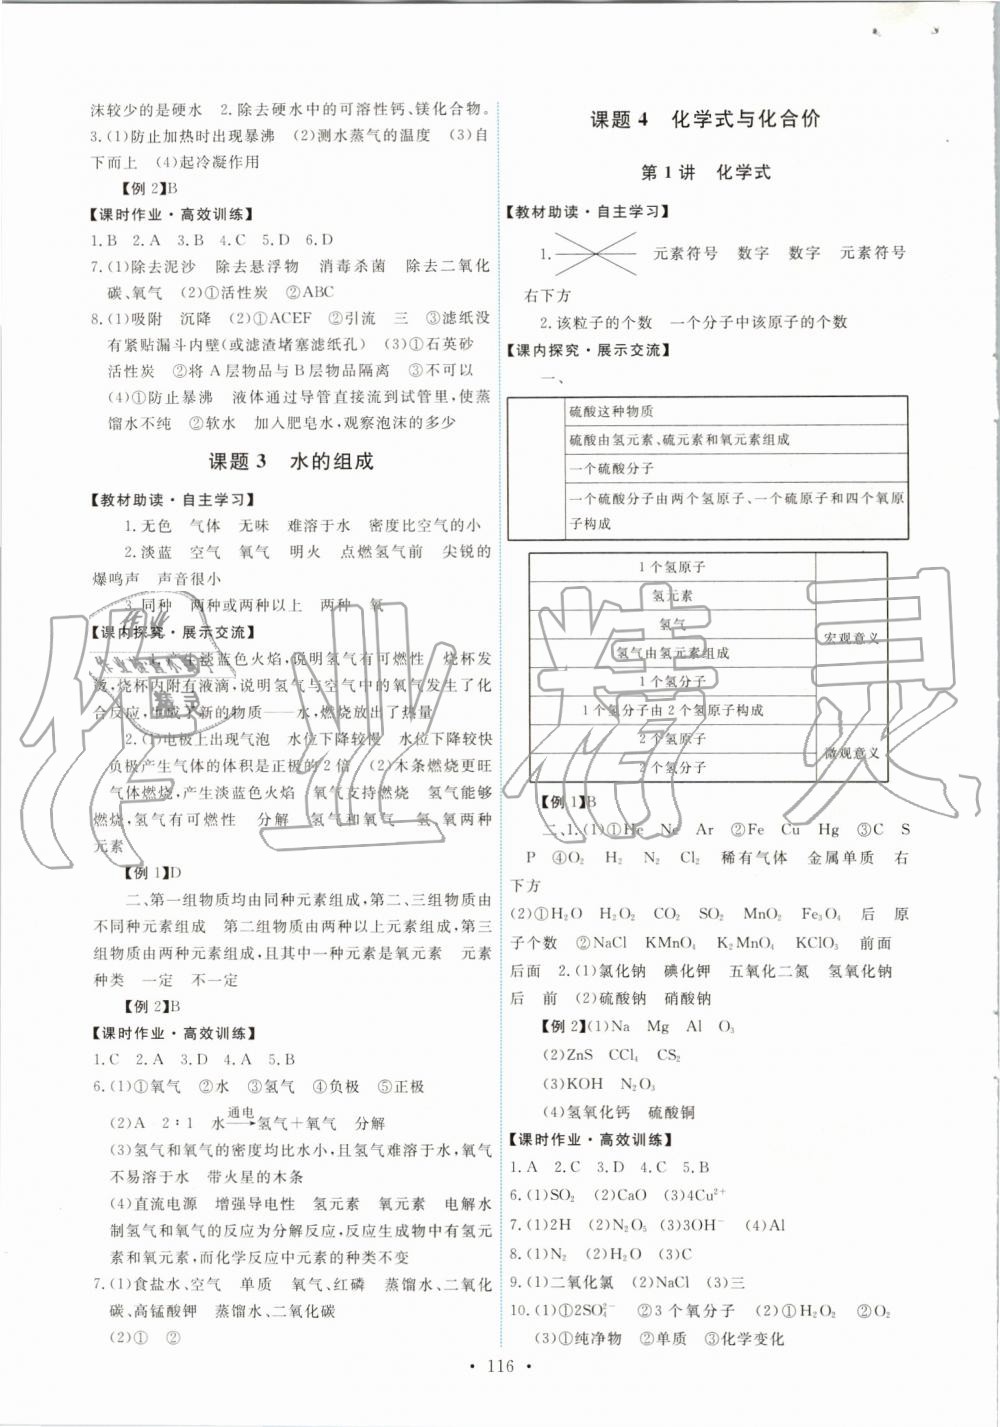 沫较少的是硬水　2.除去硬水中的可溶性钙、镁化合物。
3.(1)防止加热时出现暴沸　(2)测水蒸气的温度　(3)自
下而上　(4)起冷凝作用
【例 2】B
【课时作业·高效训练】
1.B　2.A　3.B　4.C　5.D　6.D
7.(1)除去泥沙　除去悬浮物　消毒杀菌　除去二氧化
碳、氧气　(2)①活性炭　②ABC
8.(1)吸附　沉降　(2)①ACEF　②引流　三　③滤纸没
有紧贴漏斗内壁(或滤渣堵塞滤纸孔)　(3)①石英砂
活性炭　②将 A 层物品与 B 层物品隔离　③不可以
(4)①防止暴沸　液体通过导管直接流到试管里,使蒸
馏水不纯　②软水　加入肥皂水,观察泡沫的多少
课题 3　水的组成
【教材助读·自主学习】
1.无色　气体　无味　难溶于水　密度比空气的小
2.淡蓝　空气　氧气　明火　点燃氢气前　尖锐的
爆鸣声　声音很小
3.同种　两种或两种以上　两种　氧
【课内探究·展示交流】
产生淡蓝色火焰,说明氢气有可燃性　烧杯发
烫,烧杯内附有液滴,说明氢气与空气中的氧气发生了化
合反应,生成了新的物质——水,燃烧放出了热量
2.(1)电极上出现气泡　水位下降较慢　水位下降较快
负极产生气体的体积是正极的 2 倍　(2)木条燃烧更旺
气体燃烧,产生淡蓝色火焰　氧气支持燃烧　氢气能够
燃烧,氢气有可燃性　分解　氢气和氧气　氢、氧两种
元素
【例 1】D
二、第一组物质均由同种元素组成,第二、三组物质由
不同种元素组成　第二组物质由两种以上元素组成,第三
组物质由两种元素组成,且其中一种元素是氧元素　元素
种类　一定　不一定
【例 2】B
【课时作业·高效训练】
1.C　2.A　3.D　4.A　5.B
6.(1)①氧气　②水　③氢气　④负极　⑤正极
(2)A　2∶1　水 通电→ 氢气＋氧气　分解
(3)氢气和氧气的密度均比水小,且氢气难溶于水,氧气
不易溶于水　带火星的木条
(4)直流电源　增强导电性　氢元素　氧元素　电解水
制氢气和氧气的反应为分解反应,反应生成物中有氢元
素和氧元素,而化学反应中元素的种类不变
7.(1)食盐水、空气　单质　氧气、红磷　蒸馏水、二氧化
碳、高锰酸钾　蒸馏水、二氧化碳
(2)①　②
课题 4　化学式与化合价
第 1 讲　化学式
【教材助读·自主学习】
1.　元素符号　数字　数字　元素符号
右下方
2.该粒子的个数　一个分子中该原子的个数
【课内探究·展示交流】
一、
硫酸这种物质
硫酸由氢元素、硫元素和氧元素组成
一个硫酸分子
一个硫酸分子由两个氢原子、一个硫原子和四个氧原
子构成
1 个氢原子
氢元素
氢气
宏观意义
氢气由氢元素组成
1 个氢分子
1 个氢分子由 2 个氢原子构成
2 个氢原子
微观意义
2 个氢分子
【例 1】B
二、1.(1)①He　Ne　Ar　②Fe　Cu　Hg　③C　S
P　④O₂　H₂　N₂　Cl₂　稀有气体　金属单质　右
下方
(2)①H₂O　H₂O₂　CO₂　SO₂　MnO₂　Fe₃O₄　后　原
子个数　②NaCl　KMnO₄　K₂MnO₄　KClO₃　前面
后面　2.(1)氯化钠　碘化钾　五氧化二氮　氢氧化钠
后　前　(2)硫酸钠　硝酸钠
【例 2】(1)Na　Mg　Al　O₃
(2)ZnS　CCl₄　CS₂
(3)KOH　N₂O₃
(4)氢氧化钙　硫酸铜
【课时作业·高效训练】
1.A　2.C　3.D　4.C　5.B
6.(1)SO₂　(2)CaO　(3)4Cu²⁺
7.(1)2H　(2)N₂O₅　(3)3OH⁻　(4)Al
8.(1)N₂　(2)H₂O　(3)C
9.(1)二氧化氯　(2)NaCl　(3)三
10.(1)①2SO₄²⁻　②3 个氧分子　(2)①H₂O₂　②O₂
(3)①纯净物　②单质　③化学变化
· 116 ·
作业精灵